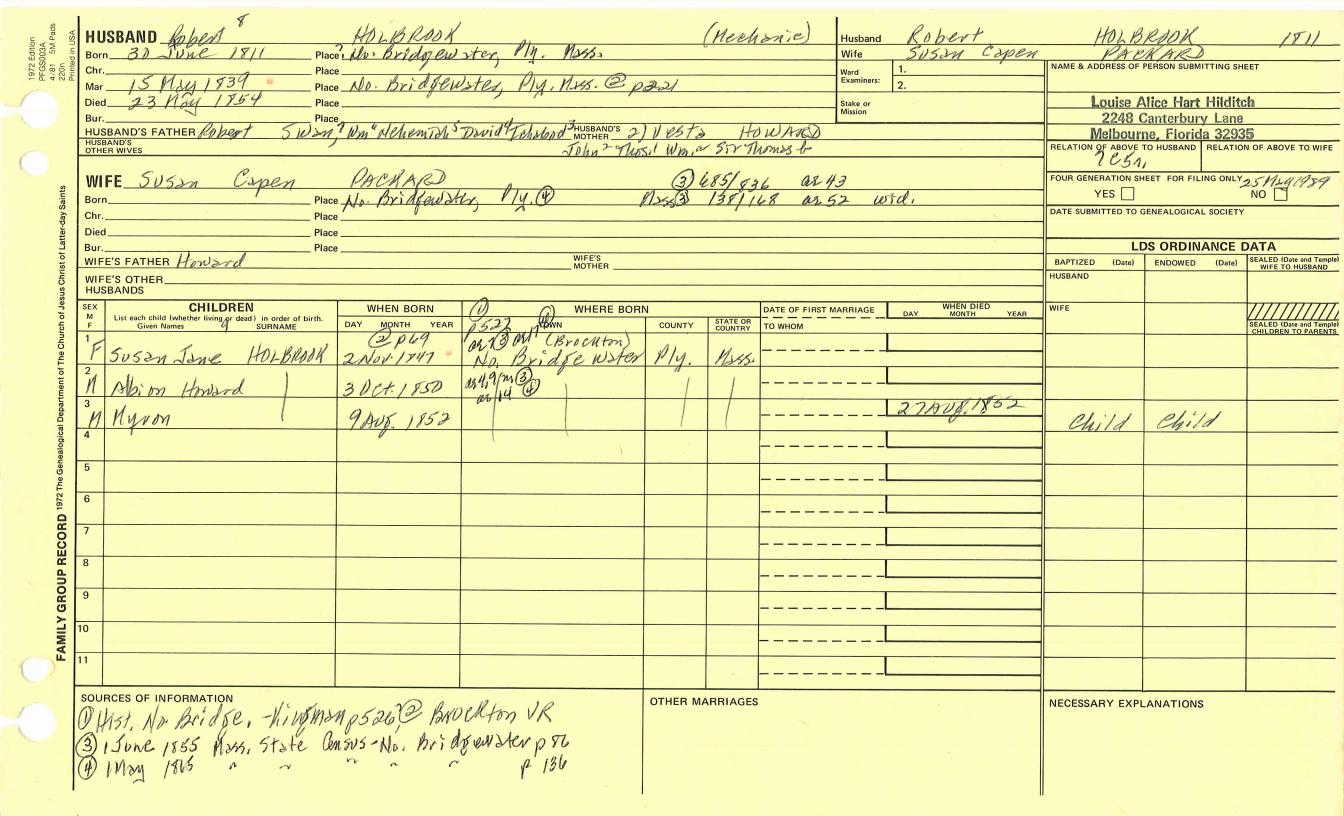 1972 Edition
PFGS003A
4/81 5M Pads
220n
Printed in USA
FAMILY GROUP RECORD 1972 The Genealogical Department of The Church of Jesus Christ of Latter-day Saints
HUSBAND Robert 8 HOLBROOK (Mechanic)
Born 30 June 1811 Place ? No. Bridgewater, Ply. Mass.
Chr. Place
Mar 15 May 1839 Place No. Bridgewater, Ply. Mass. ② p221
Died 23 May 1854 Place
Bur. Place
HUSBAND'S FATHER Robert Swan 7 Wm 6 Nehemiah 5 David 4 Ichabod 3 HUSBAND'S MOTHER 2) Vesta HOWARD
HUSBAND'S OTHER WIVES John 2 Thos. 1 Wm. a Sir Thomas b
WIFE Susan Capen PACKARD ③ 685/836 ae 43
Born Place No. Bridgewater, Ply. ④ Mass ③ 138/168 ae 52 wid.
Chr. Place
Died Place
Bur. Place
WIFE'S FATHER Howard WIFE'S MOTHER
WIFE'S OTHER HUSBANDS
Husband Robert HOLBROOK 1811
Wife Susan Capen PACKARD
Ward Examiners: 1.
2.
Stake or Mission
NAME & ADDRESS OF PERSON SUBMITTING SHEET
Louise Alice Hart Hilditch
2248 Canterbury Lane
Melbourne, Florida 32935
RELATION OF ABOVE TO HUSBAND RELATION OF ABOVE TO WIFE
FOUR GENERATION SHEET FOR FILING ONLY 25 May 1989
YES NO
DATE SUBMITTED TO GENEALOGICAL SOCIETY
LDS ORDINANCE DATA
BAPTIZED (Date) ENDOWED (Date) SEALED (Date and Temple) WIFE TO HUSBAND
HUSBAND
WIFE
SEALED (Date and Temple) CHILDREN TO PARENTS
SEX M F CHILDREN WHEN BORN WHERE BORN DATE OF FIRST MARRIAGE WHEN DIED
List each child (whether living or dead) in order of birth.
Given Names 9 SURNAME DAY MONTH YEAR TOWN COUNTY STATE OR COUNTRY TO WHOM DAY MONTH YEAR
① p522 ④
② p69 ae 7 ③ ae 17 (Brockton)
1 F Susan Jane HOLBROOK 2 Nov. 1847 No. Bridgewater Ply. Mass.
2 M Albion Howard 3 Oct. 1850 ae 4, 9/m ③
ae 14 ④
3 M Myron 9 Aug. 1852 27 Aug. 1852 Child Child
4
5
6
7
8
9
10
11
SOURCES OF INFORMATION
① Hist. No Bridge, -Kingman p526 ② Brockton VR
③ 1 June 1855 Mass. State Census - No. Bridgewater p 86
④ 1 May 1865 " " " " " p 136
OTHER MARRIAGES
NECESSARY EXPLANATIONS